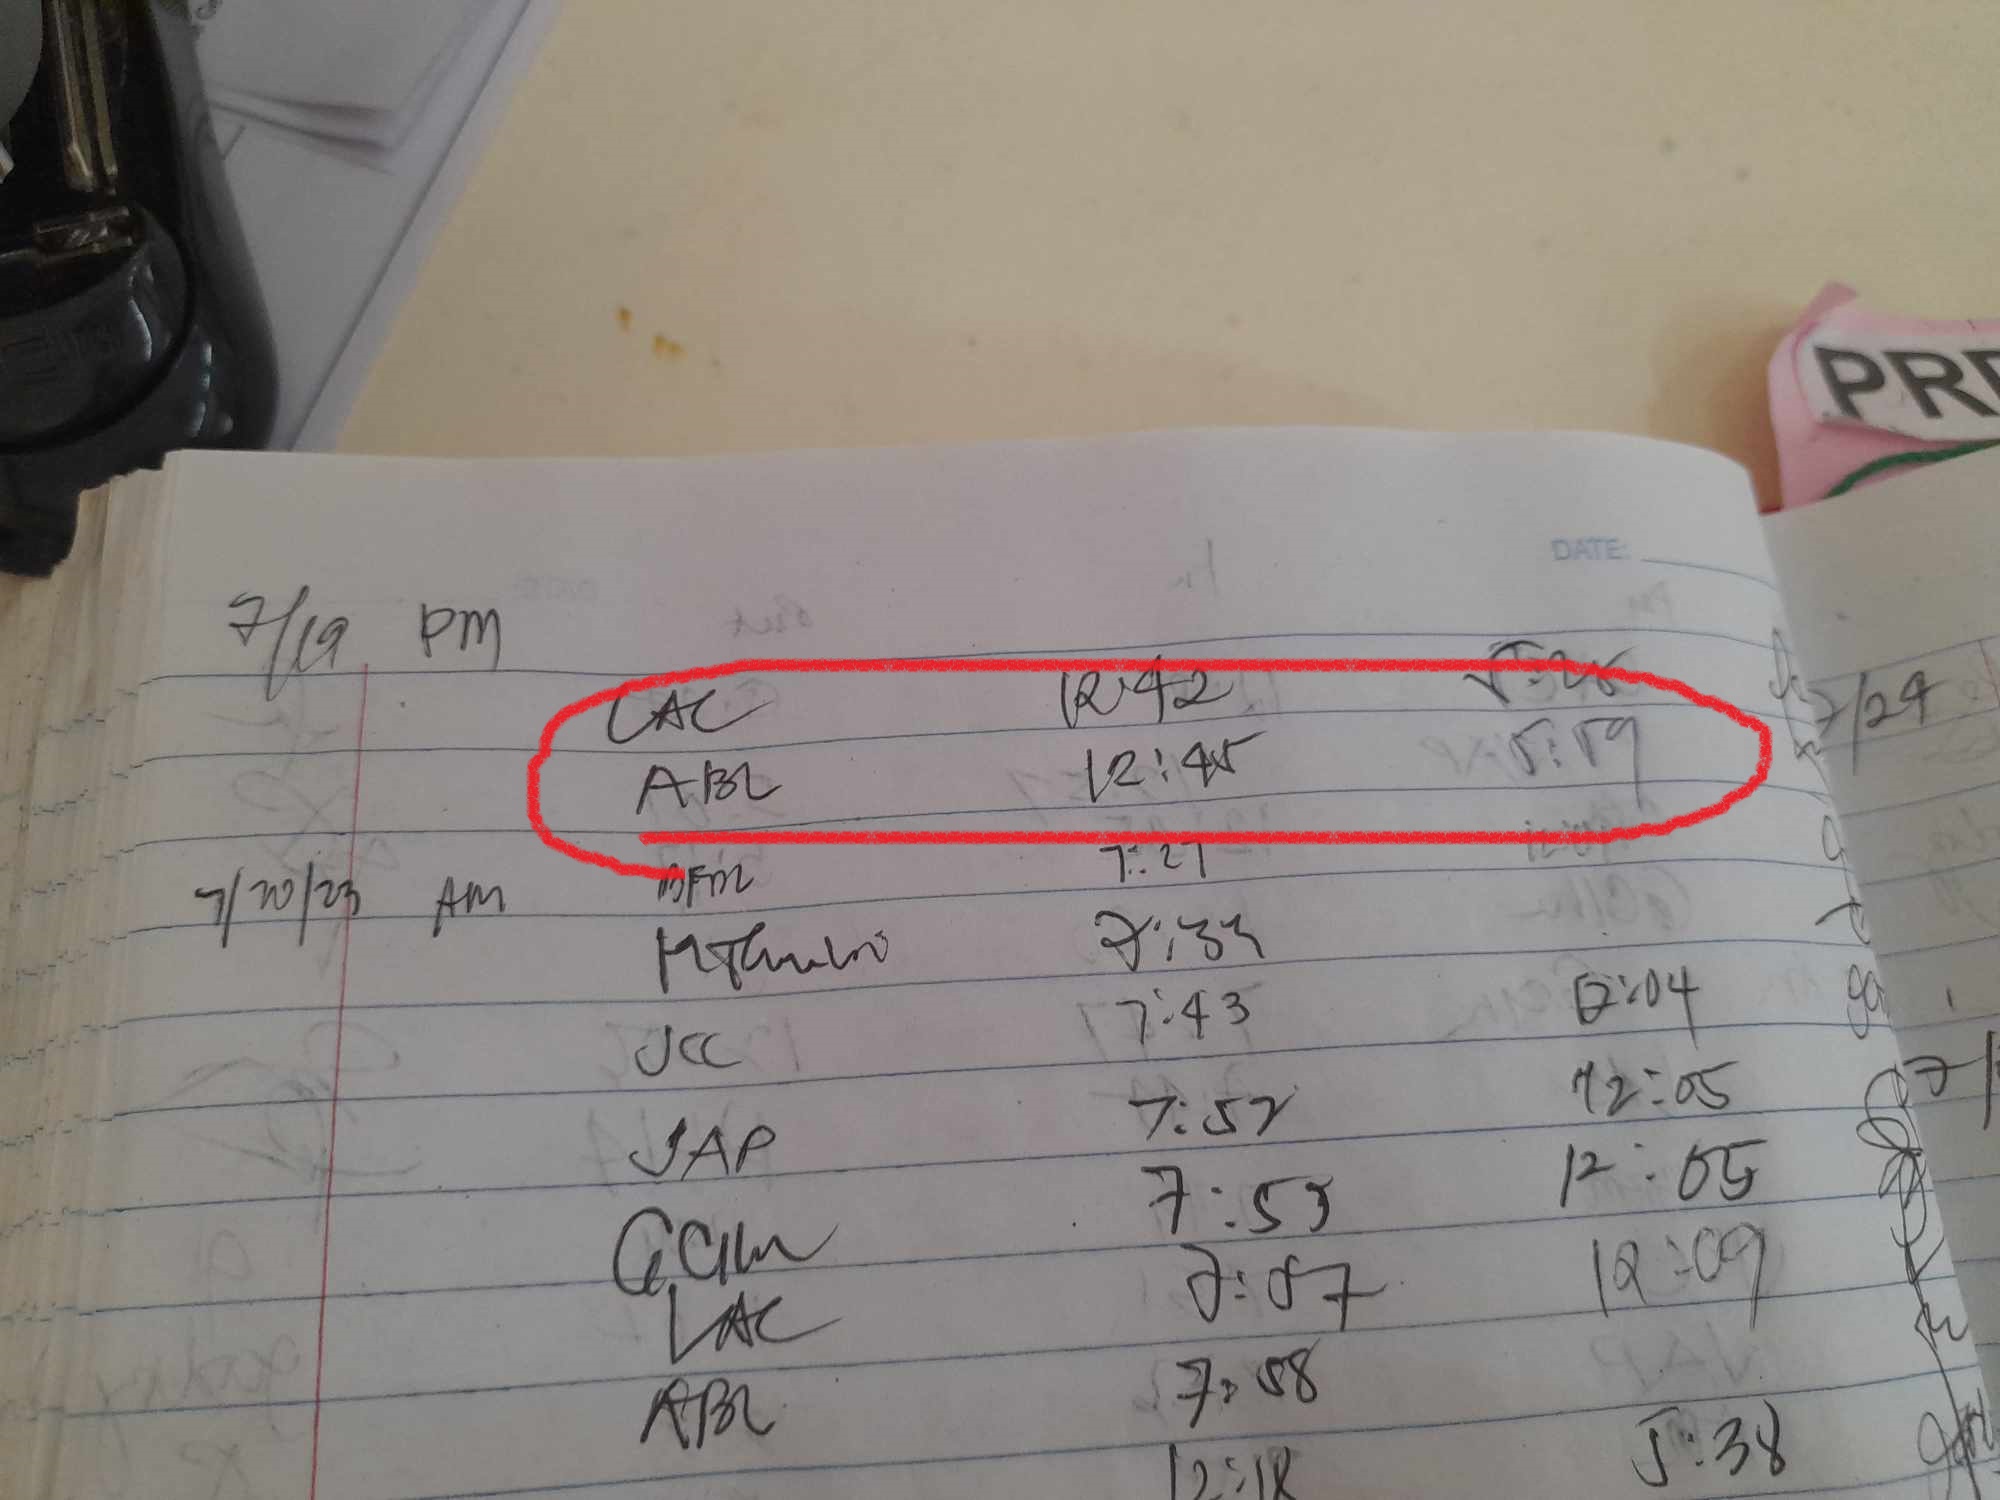 DATE:
PRE
7/19 PM
LAC 12:42
ABL 12:45 5:59
7/24
7/20/23 AM BFM 7:27
7:33
JCC 7:43 12:04
JAP 7:52 12:05
7:53 12:05
LAC 7:57 12:09
ABL 7:58
12:18 5:38